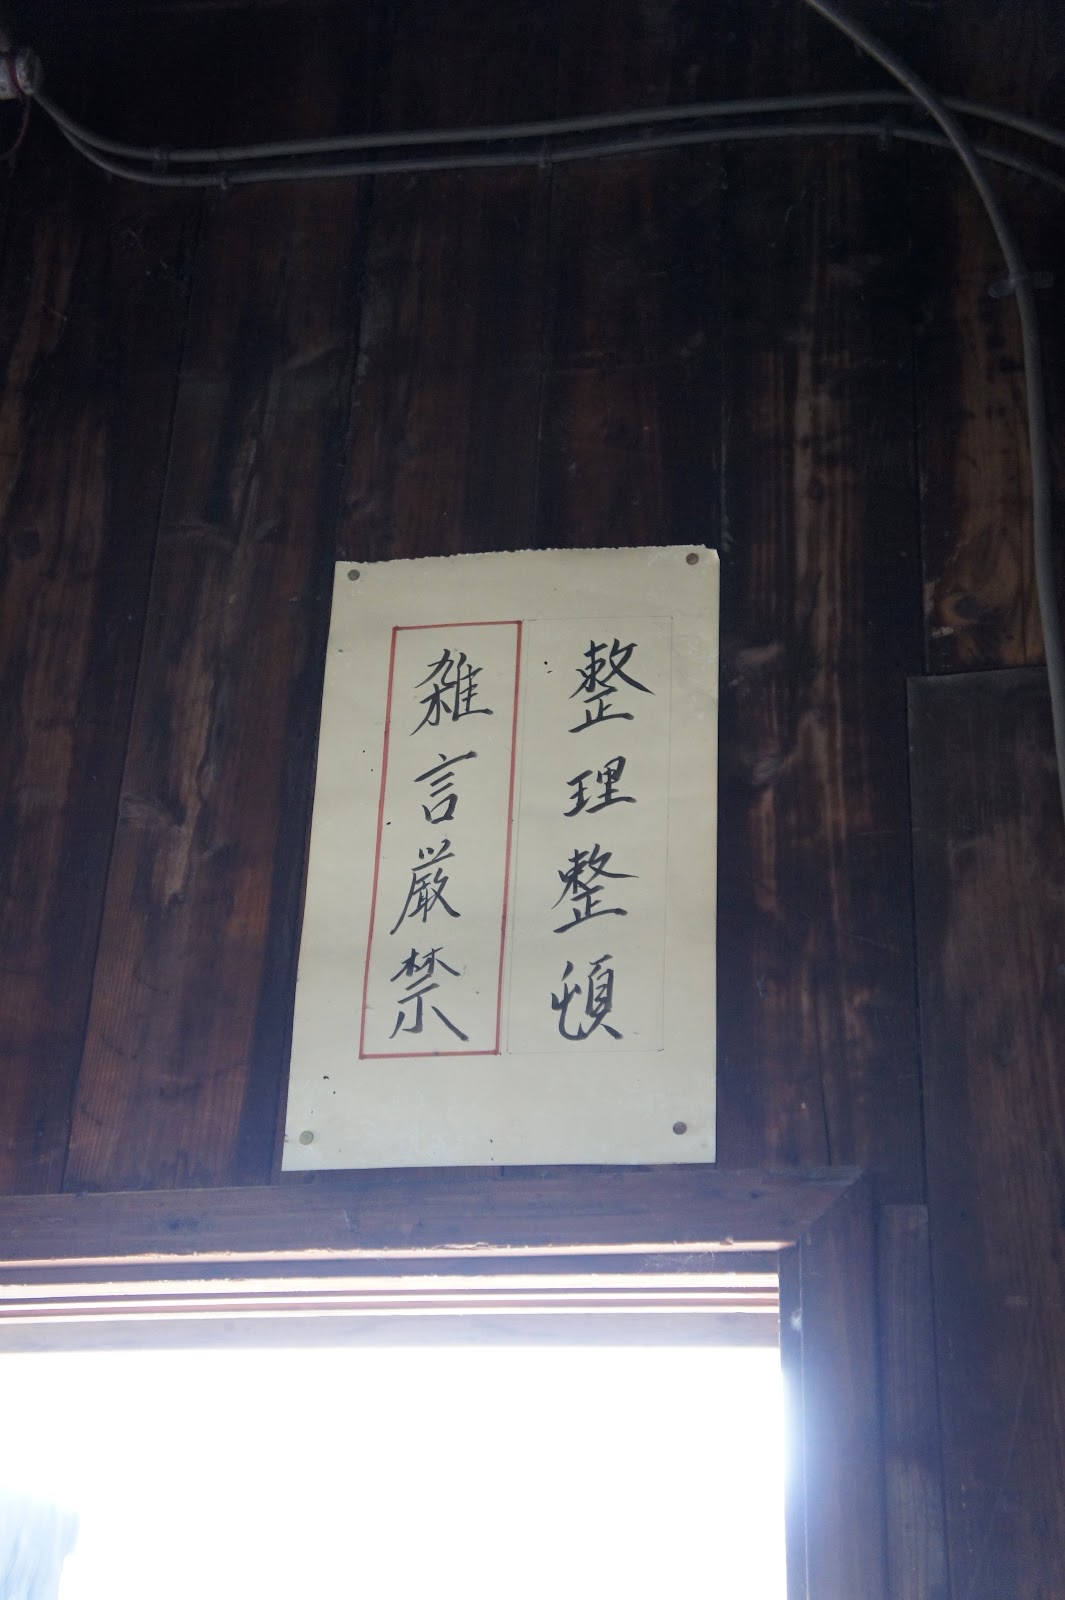 整理整頓
雑言厳禁